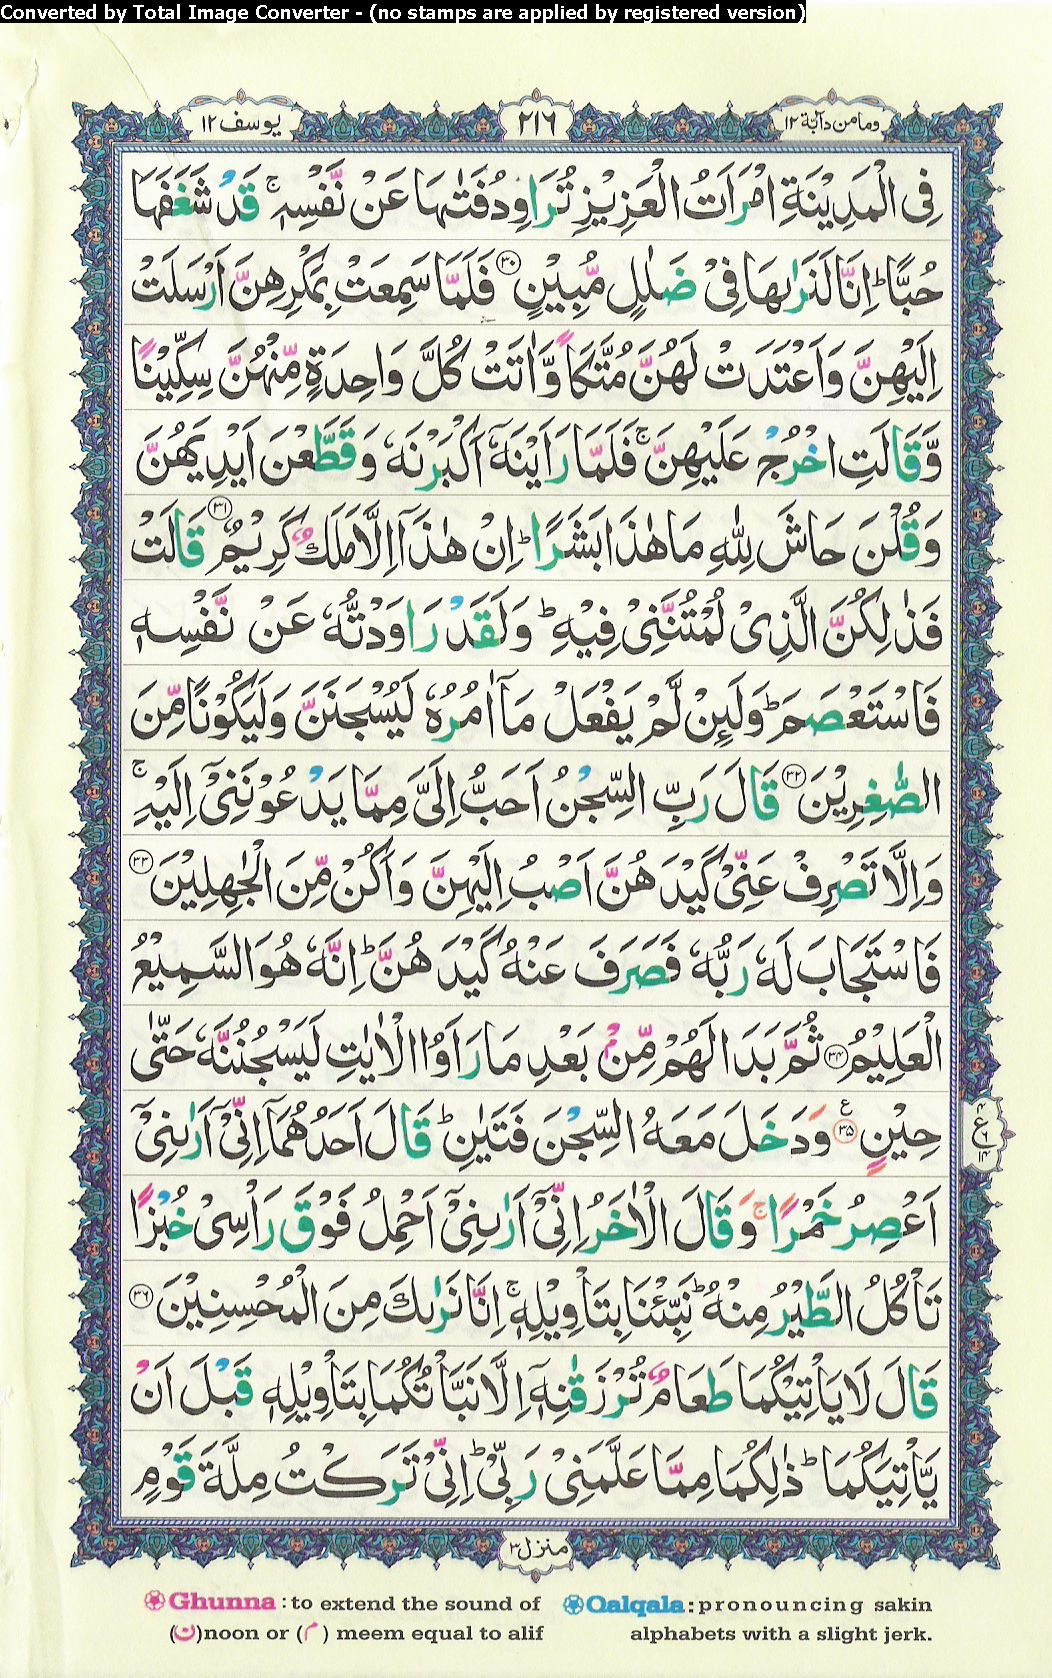 Converted by Total Image Converter - (no stamps are applied by registered version)
وما من دآبة ١٢
٢١٦
يوسف ١٢
فِى الْمَدِيْنَةِ امْرَاَتُ الْعَزِيْزِ تُرَاوِدُ فَتٰىهَا عَنْ نَّفْسِهٖ ۚ قَدْ شَغَفَهَا
حُبًّا ؕ اِنَّا لَنَرٰىهَا فِىْ ضَلٰلٍ مُّبِيْنٍ ۝٣٠ فَلَمَّا سَمِعَتْ بِمَكْرِهِنَّ اَرْسَلَتْ
اِلَيْهِنَّ وَاَعْتَدَتْ لَهُنَّ مُتَّكَاً وَّاٰتَتْ كُلَّ وَاحِدَةٍ مِّنْهُنَّ سِكِّيْنًا
وَّقَالَتِ اخْرُجْ عَلَيْهِنَّ ۚ فَلَمَّا رَاَيْنَهٗۤ اَكْبَرْنَهٗ وَقَطَّعْنَ اَيْدِيَهُنَّ
وَقُلْنَ حَاشَ لِلّٰهِ مَا هٰذَا بَشَرًا ؕ اِنْ هٰذَاۤ اِلَّا مَلَكٌ كَرِيْمٌ ۝٣١ قَالَتْ
فَذٰلِكُنَّ الَّذِىْ لُمْتُنَّنِىْ فِيْهِ ؕ وَلَقَدْ رَاوَدْتُّهٗ عَنْ نَّفْسِهٖ
فَاسْتَعْصَمَ ؕ وَلَئِنْ لَّمْ يَفْعَلْ مَاۤ اٰمُرُهٗ لَيُسْجَنَنَّ وَلَيَكُوْنًا مِّنَ
الصّٰغِرِيْنَ ۝٣٢ قَالَ رَبِّ السِّجْنُ اَحَبُّ اِلَىَّ مِمَّا يَدْعُوْنَنِىْۤ اِلَيْهِ ۚ
وَاِلَّا تَصْرِفْ عَنِّىْ كَيْدَهُنَّ اَصْبُ اِلَيْهِنَّ وَاَكُنْ مِّنَ الْجٰهِلِيْنَ ۝٣٣
فَاسْتَجَابَ لَهٗ رَبُّهٗ فَصَرَفَ عَنْهُ كَيْدَهُنَّ ؕ اِنَّهٗ هُوَ السَّمِيْعُ
الْعَلِيْمُ ۝٣٤ ثُمَّ بَدَا لَهُمْ مِّنْۢ بَعْدِ مَا رَاَوُا الْاٰيٰتِ لَيَسْجُنُنَّهٗ حَتّٰى
حِيْنٍ ۝٣٥ وَدَخَلَ مَعَهُ السِّجْنَ فَتَيٰنِ ؕ قَالَ اَحَدُهُمَاۤ اِنِّىْۤ اَرٰىنِىْۤ
اَعْصِرُ خَمْرًا ۚ وَقَالَ الْاٰخَرُ اِنِّىْۤ اَرٰىنِىْۤ اَحْمِلُ فَوْقَ رَاْسِىْ خُبْزًا
تَاْكُلُ الطَّيْرُ مِنْهُ ؕ نَبِّئْنَا بِتَاْوِيْلِهٖ ۚ اِنَّا نَرٰىكَ مِنَ الْمُحْسِنِيْنَ ۝٣٦
قَالَ لَا يَاْتِيْكُمَا طَعَامٌ تُرْزَقٰنِهٖۤ اِلَّا نَبَّاْتُكُمَا بِتَاْوِيْلِهٖ قَبْلَ اَنْ
يَّاْتِيَكُمَا ؕ ذٰلِكُمَا مِمَّا عَلَّمَنِىْ رَبِّىْ ؕ اِنِّىْ تَرَكْتُ مِلَّةَ قَوْمٍ
منزل ٣
Ghunna : to extend the sound of
(ن)noon or (م) meem equal to alif
Qalqala : pronouncing sakin
alphabets with a slight jerk.